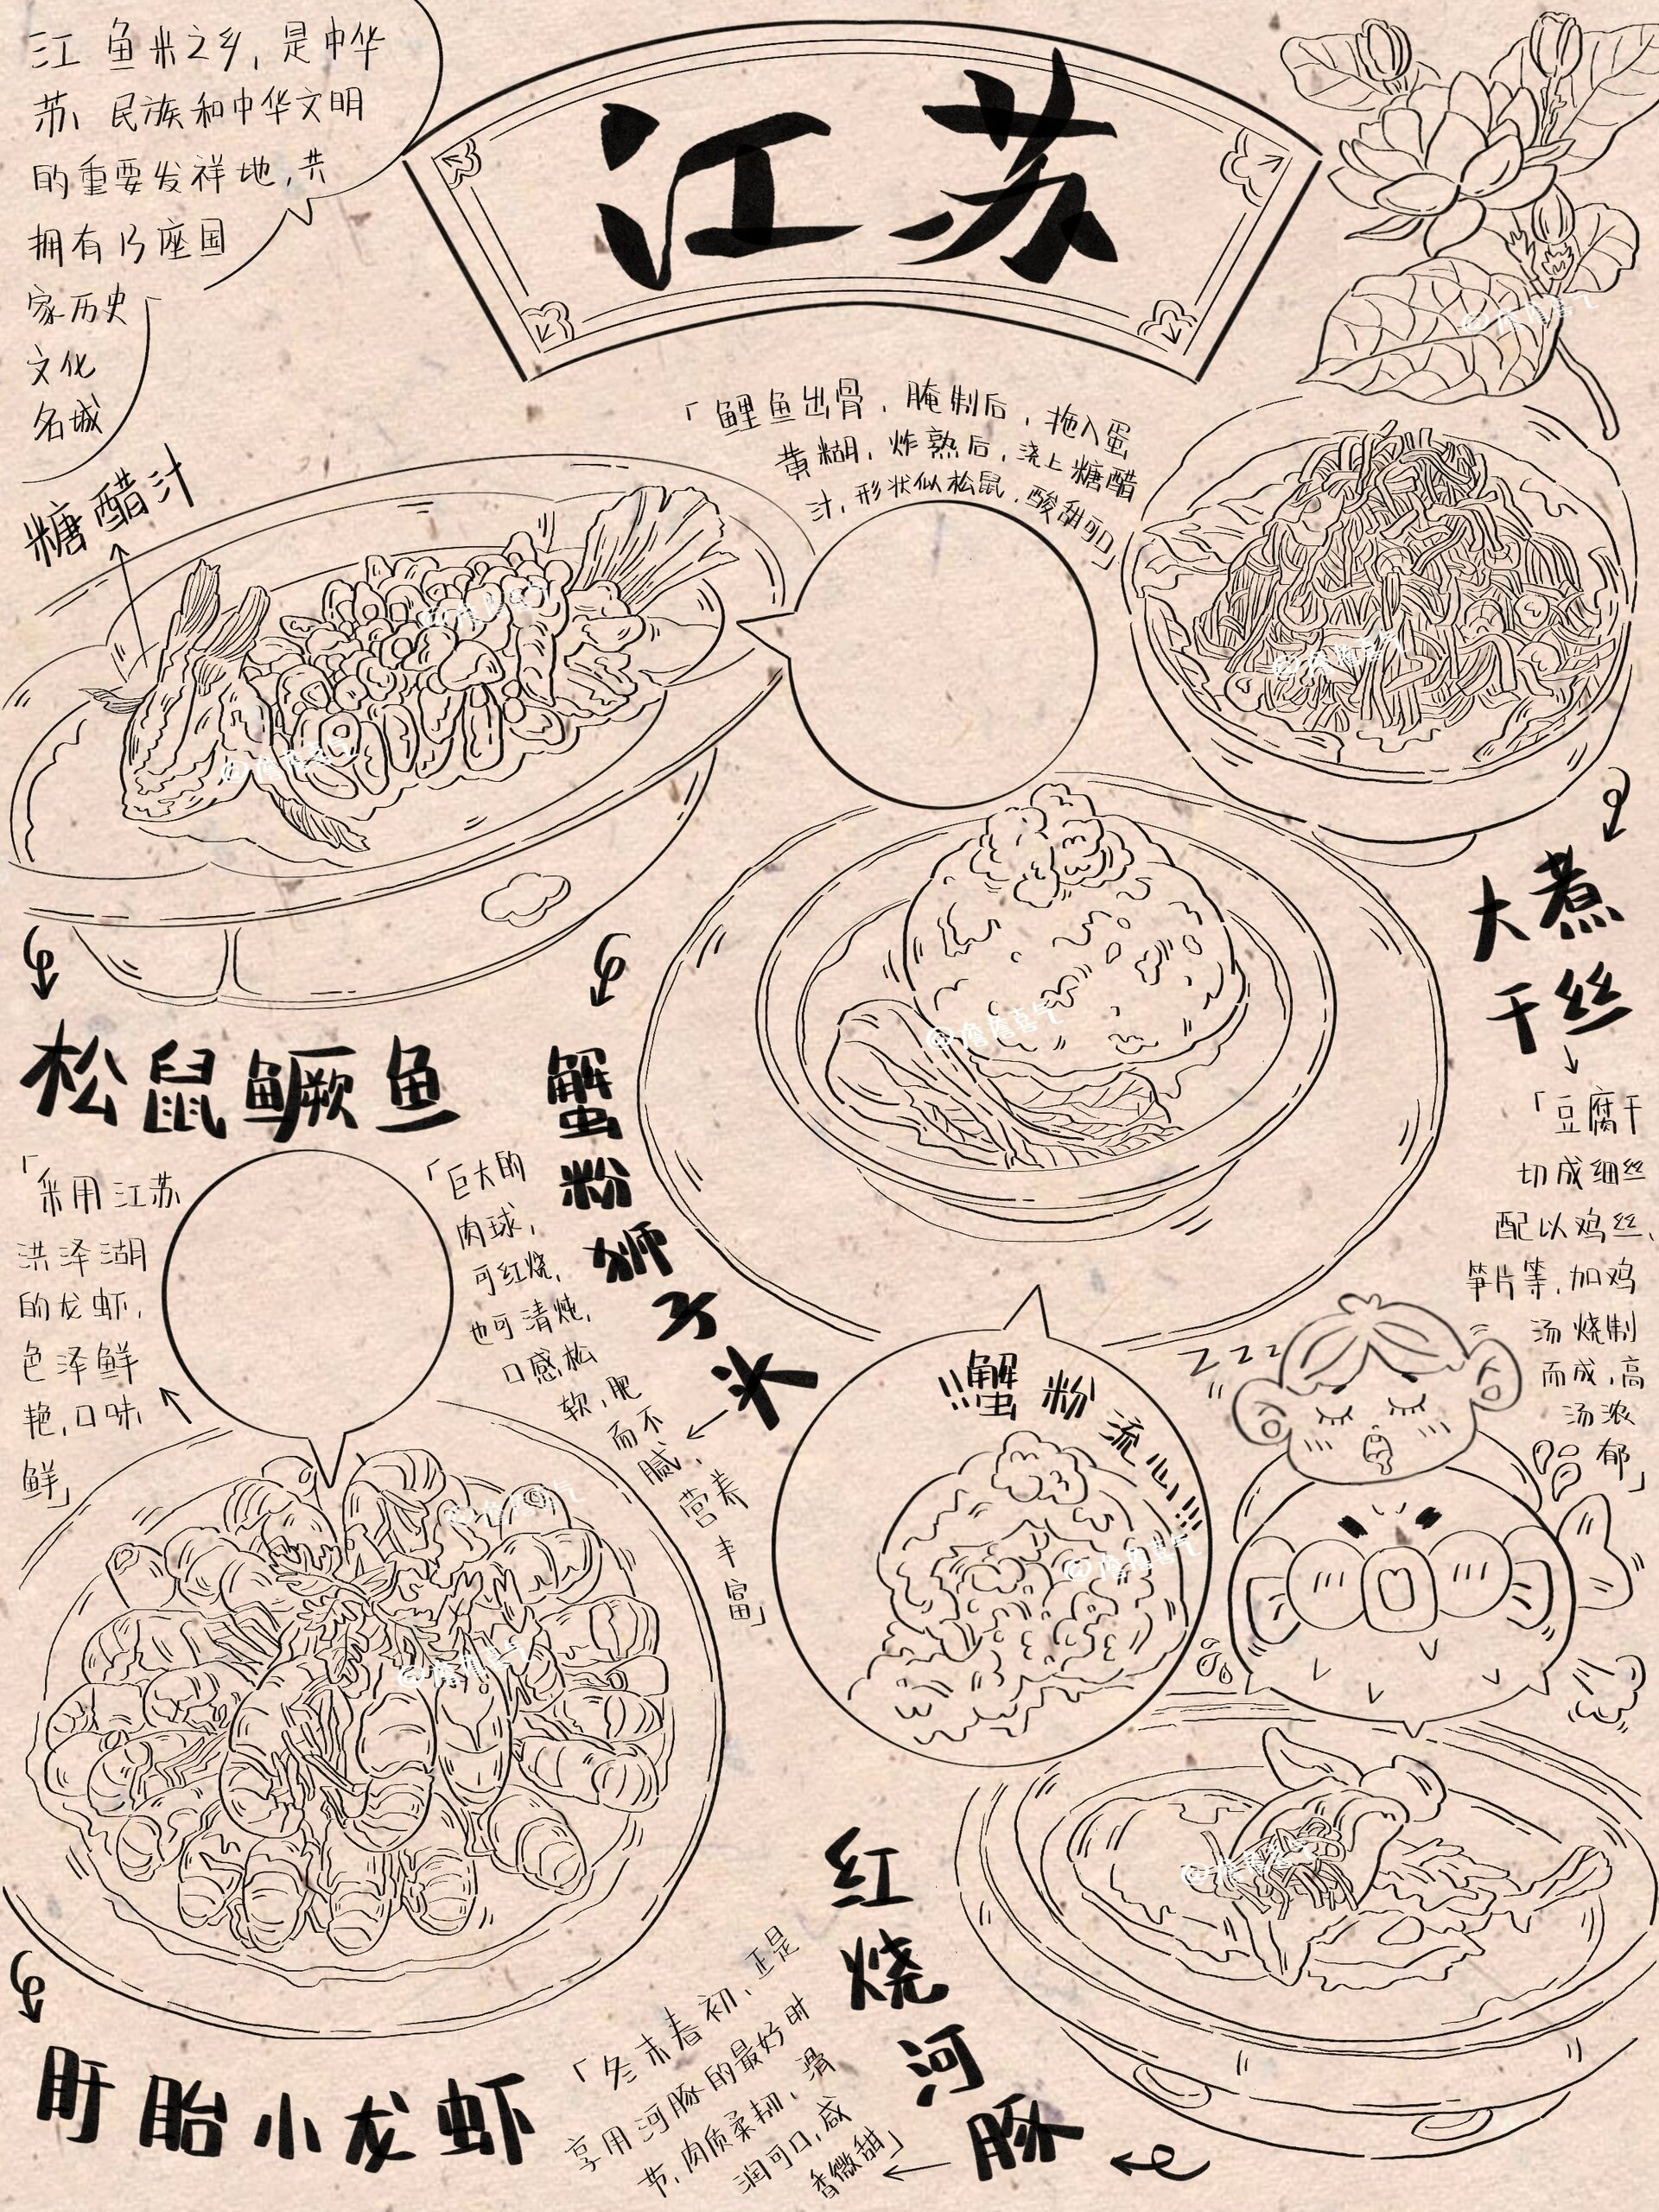 江苏
江 鱼米之乡，是中华
苏 民族和中华文明
的重要发祥地，共
拥有13座国
家历史
文化
名城
糖醋汁
「鲤鱼出骨，腌制后，拖入蛋
黄糊，炸熟后，浇上糖醋
汁，形状似松鼠，酸甜可口」
大煮
干丝
「豆腐干
切成细丝
配以鸡丝、
笋片等，加鸡
汤烧制
而成，高
汤浓
郁」
松鼠鳜鱼
蟹粉狮子头
「巨大的
肉球，
可红烧，
也可清炖，
口感松
软，肥
而不
腻，
营养
丰
富」
「采用江苏
洪泽湖
的龙虾，
色泽鲜
艳，口味
鲜」
蟹粉流心!!!
zzz
红烧河豚
「冬末春初，正是
享用河豚的最好时
节，肉质柔韧、滑
润可口，咸
香微甜」
盱眙小龙虾